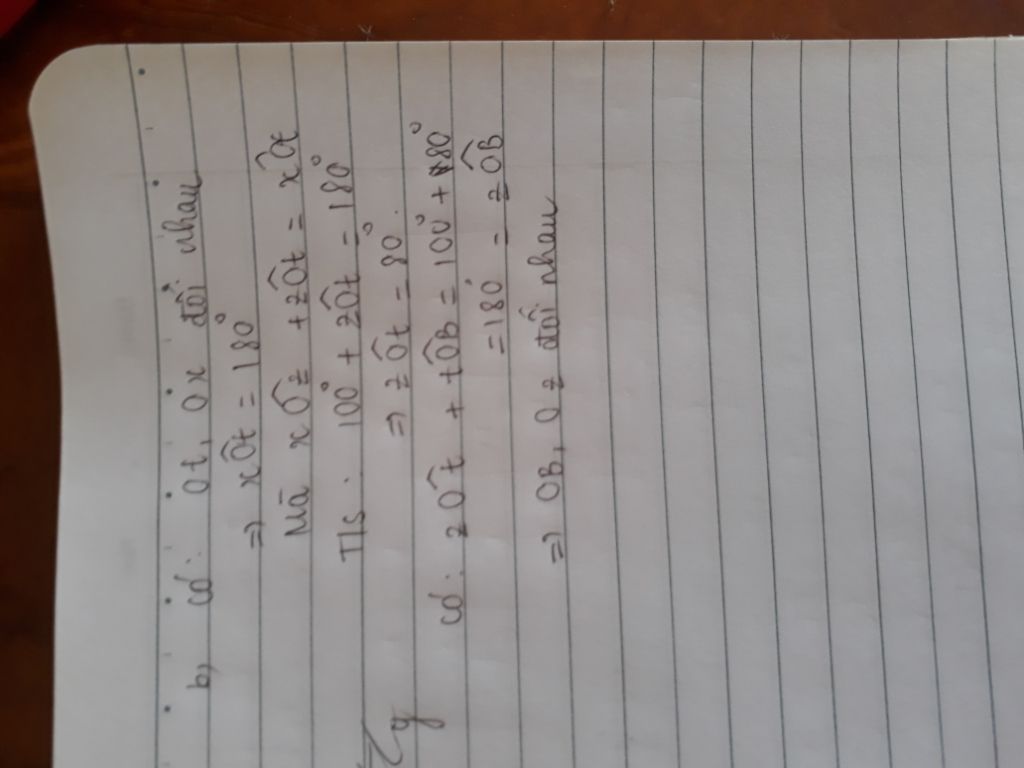 b, có: Ot, Ox đối nhau
=> xÔt = 180°
Mà xÔz + zÔt = xÔt
Ts: 100° + zÔt = 180°
=> zÔt = 80°.
Có: zÔt + tÔB = 100° + 80°
= 180° = zÔB
=> OB, Oz đối nhau
y